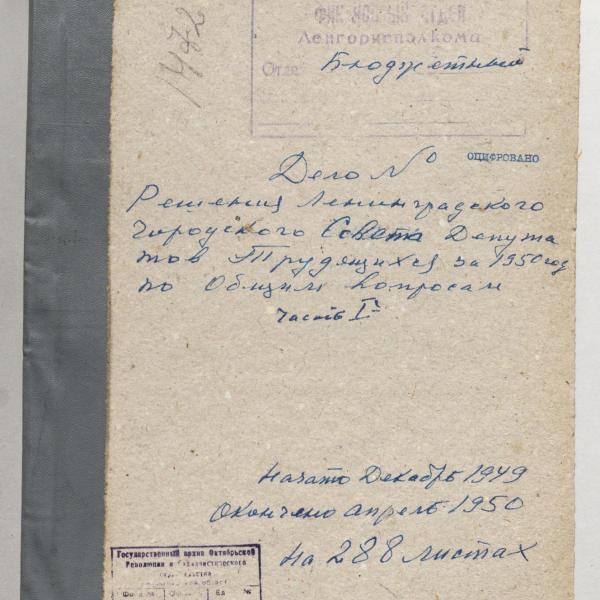 1472
Финансовый отдел
Ленгорисполкома
Отдел Бюджетный
ОЦИФРОВАНО
Дело №
Решения Ленинградского
Городского Совета Депута
тов Трудящихся за 1950 год
по Общим вопросам
часть I-
Начато Декабрь 1949
Окончено апрель 1950
На 288 листах
Государственный архив Октябрьской
Революции и
Ед №